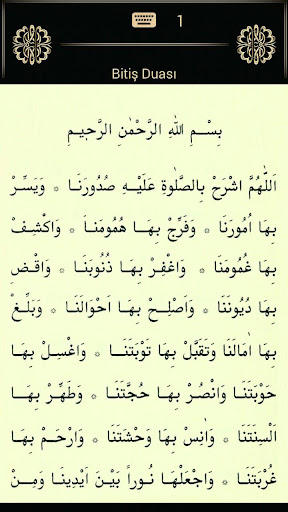 1
Bitiş Duası
بِسْــمِ اللهِ الرَّحْمٰنِ الرَّحٖيمِ
اَللّٰهُمَّ اشْرَحْ بِالصَّلٰوةِ عَلَيْــهِ صُدُورَنَا ۞ وَيَسِّرْ
بِهَا اُمُورَنَا ۞ وَفَرِّجْ بِهَا هُمُومَنَا ۞ وَاكْشِفْ
بِهَا غُمُومَنَا ۞ وَاغْفِرْ بِهَا ذُنُوبَنَا ۞ وَاقْـضِ
بِهَا دُيُونَنَا ۞ وَاَصْلِـحْ بِهَا اَحْوَالَنَا ۞ وَبَلِّـغْ
بِهَا اٰمَالَنَا وَتَقَبَّلْ بِهَا تَوْبَتَنَـا ۞ وَاغْسِـلْ بِهَا
حَوْبَتَنَا وَانْصُرْ بِهَا حُجَّتَنَا ۞ وَطَهِّرْ بِهَـا
اَلْسِنَتَنَا ۞ وَاٰنِسْ بِهَا وَحْشَتَنَا ۞ وَارْحَـمْ بِهَا
غُرْبَتَنَا ۞ وَاجْعَلْهَا نُـوراً بَيْنَ اَيْدِينَا وَمِـنْ